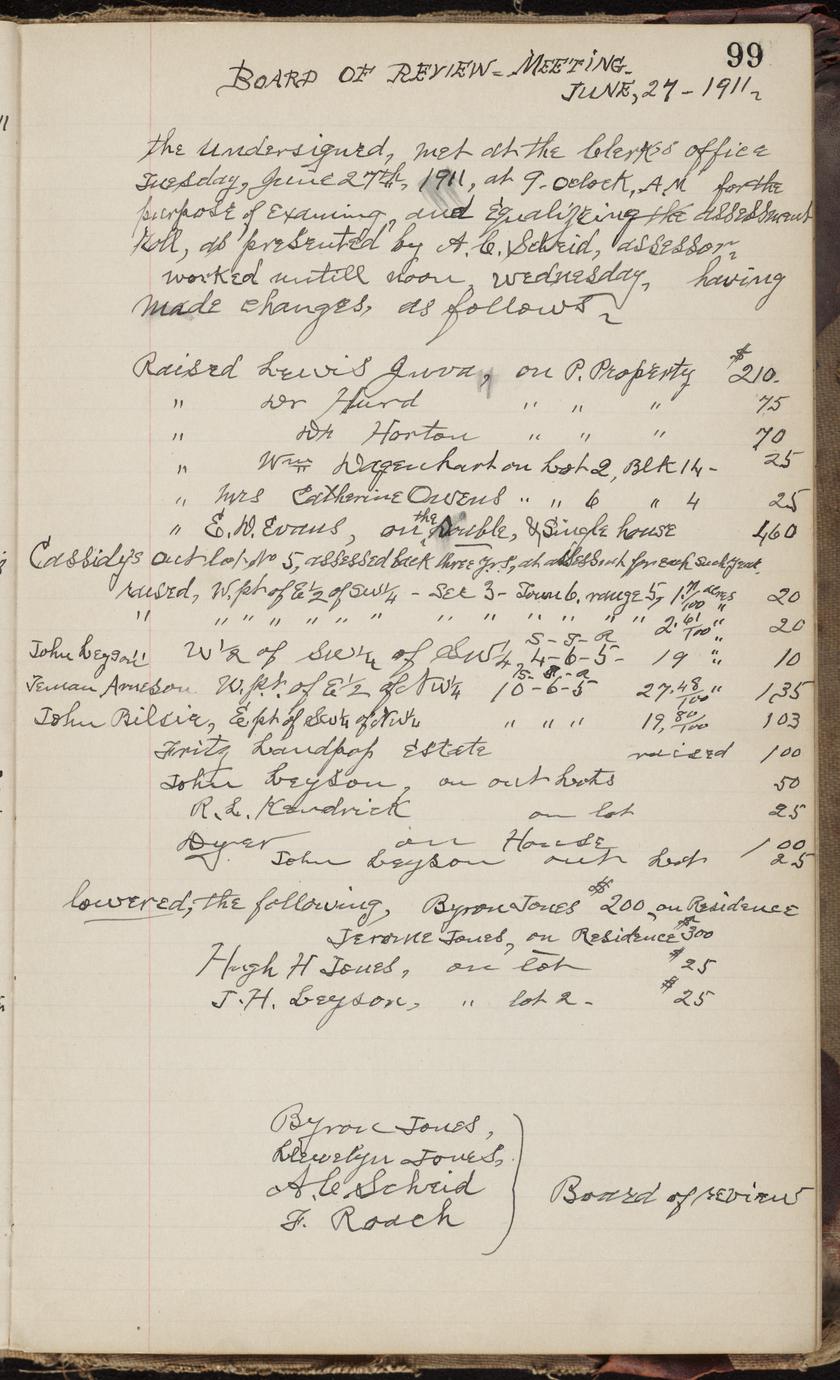 99
BOARD OF REVIEW - MEETING -
JUNE, 27 - 1911
the undersigned, met at the Clerks office
Tuesday, June 27th, 1911, at 9-Oclock, A.M for the
purpose of Examing, and Equalizeing the assessment
Roll, as presented by A.C. Scheid, assessor
worked untill noon, Wednesday, having
made changes, as follows
Raised Lewis on P. Property $210-
" Dr Hurd " " " 75
" Dr Horton " " " 70
" Wm Wagenhart on Lot 2, Blk 14 - 25
" Mrs Catherine Owens " " 6 " 4 25
" E.W. Evans, on the Double, & Single house 460
Cassidy's out lot No 5, assessed back three yrs, at for each such year.
raised, W.pt of E 1/2 of SW 1/4 - Sec 3 - Town 6. range 5, acres 20
" " " " " " " " " " " " 2. 61/100 " 20
S - T - R
John Leyson W 1/2 of SW 1/4 of SW 1/4 4-6-5 - 19 " 10
S - T - R
Arneson W.pt. of E 1/2 of NW 1/4 10-6-5 27. 48/100 " 135
John Bilsie, E pt of SW 1/4 of NW 1/4 " " " 19, 80/100 103
Fritz Landpap Estate raised 100
John Leyson, on out Lots 50
R.L. Kendrick on lot 25
Dyer on House 100
John Leyson out lot 25
lowered, the following, Byron Jones $200 on Residence
Jerome Jones, on Residence $300
Hugh H Jones, on lot $25
J.H. Leyson, " lot 2 - $25
Byron Jones,
Llewelyn Jones,
A.C. Scheid
F. Roach
Board of review